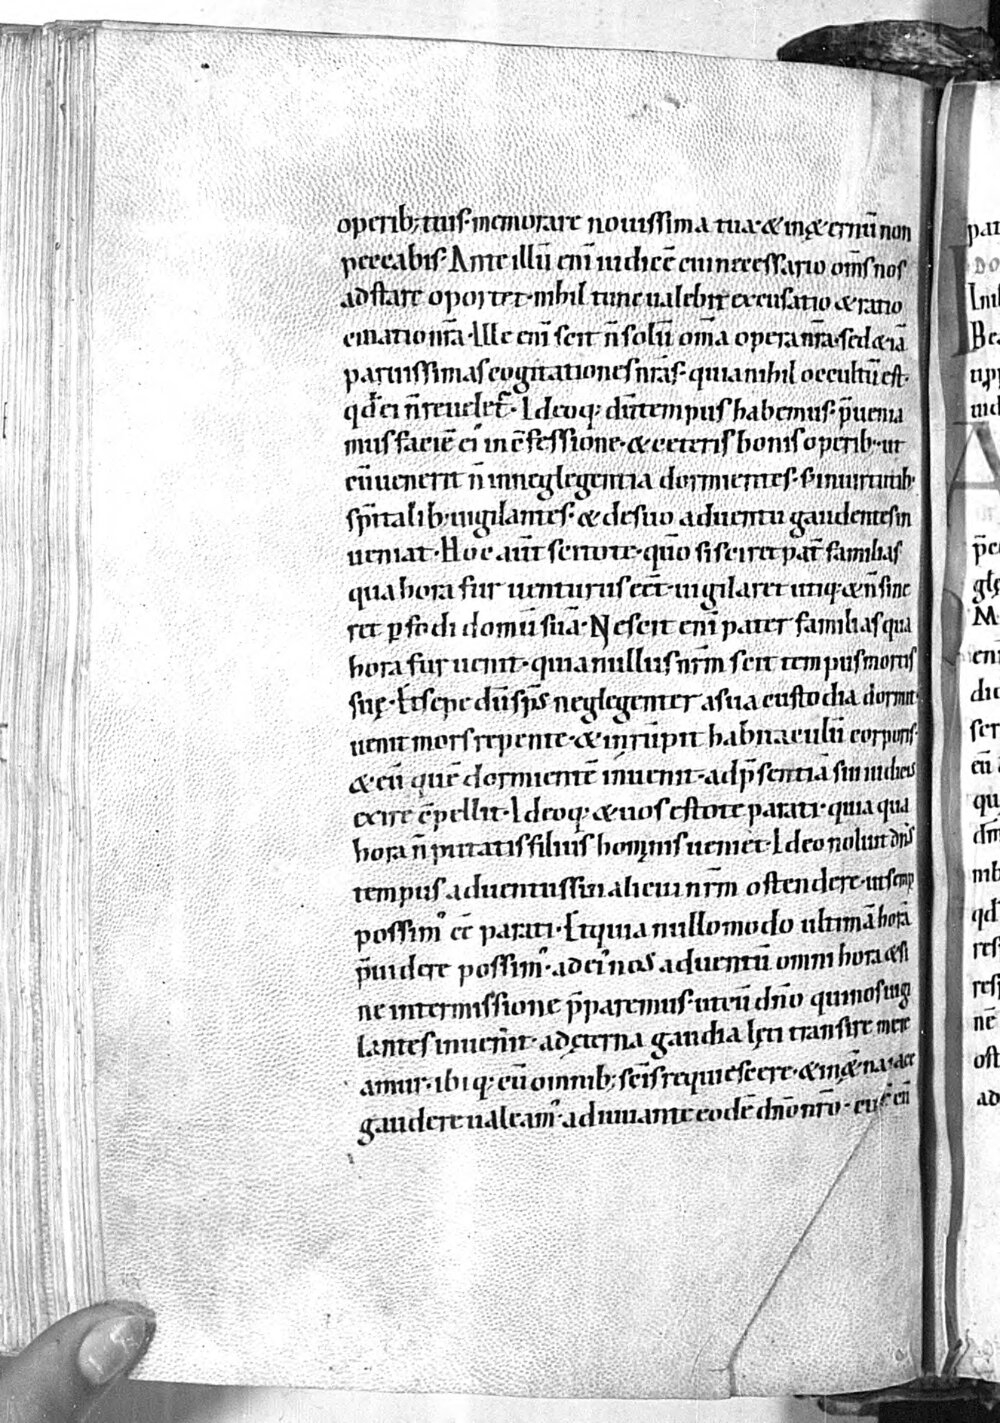 operib; tuis· memorare nouissima tua· & in ęternū non
peccabis· Ante illū eni᷑ iudicē cui necessario om̄s nos
adstare oportet· nihil tunc ualebit excusatio & ratio
cinatio nr̄a· Ille eni᷑ scit n̄ solū om̄a opera nr̄a· sed & iā
paruissimas cogitationes nr̄as· quia nihil occultū est·
qđ ei n̄ reueleƭ· Ideoq; dū tempus habemus· p̄uenia
mus faciē ei᷒ in c̄fessione· & ceteris bonis operib;· ut
cū uenerit n̄ in neglegentia dormientes· s; in uirtutib;
sp̄italib; uigilantes· & de suo aduentu gaudentes in
ueniat· Hoc aūt scitote· quō si sciret pat̄ familias
qua hora fur uenturus eēt· uigilaret utiq; & n̄ sine
ret ꝑfodi domū suā· Nescit eni᷑ pater familias qua
hora fur uenit· quia nullus nr̄m scit tempus mortis
suę· Et sepe dū sp̄s neglegenter a sua custodia dormit·
uenit mors repente· & inrūpit habitaculū corporis·
& cū quē dormientē inuenit· ad p̄sentiā sui iudicis
exire c̄pellit· Ideoq; & uos estote parati· quia qua
hora n̄ putatis filius hominis ueniet· Ideo noluit dn̄s
tempus aduentus sui alicui nr̄m ostendere· ut semp
possim᷒ eē parati· Et quia nullo modo ultimā horā
p̄uidere possim᷒· ad ei᷒ nos aduentū omni hora & si
ne intermissione p̄paremus· ut cū dn̄o qui nos uigi
lantes inuen̄it· ad ęterna gaudia lęti transire mere
amur· ibiq; cū omnib; sc̄is requiescere· & in ę̄
gaudere ualeam᷒ adiuuante eodē dn̄o nr̄o·